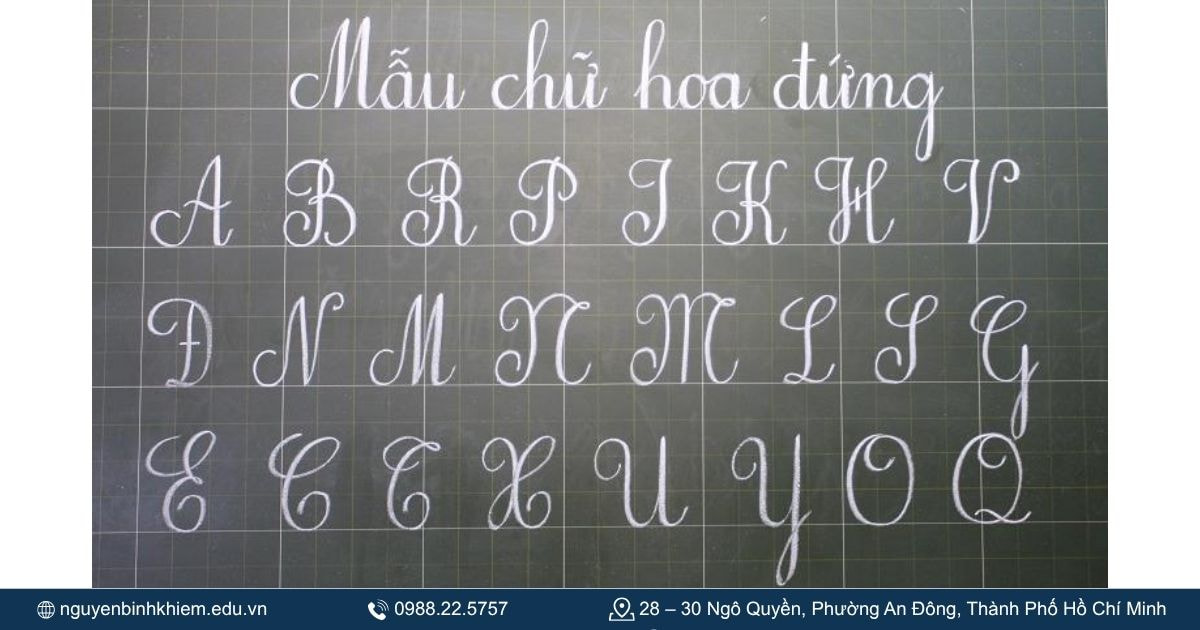 Mẫu chữ hoa đứng
A B R P I K H V
Đ N M N M L S G
E C T X U Y O Q
nguyenbinhkhiem.edu.vn 0988.22.5757 28 – 30 Ngô Quyền, Phường An Đông, Thành Phố Hồ Chí Minh